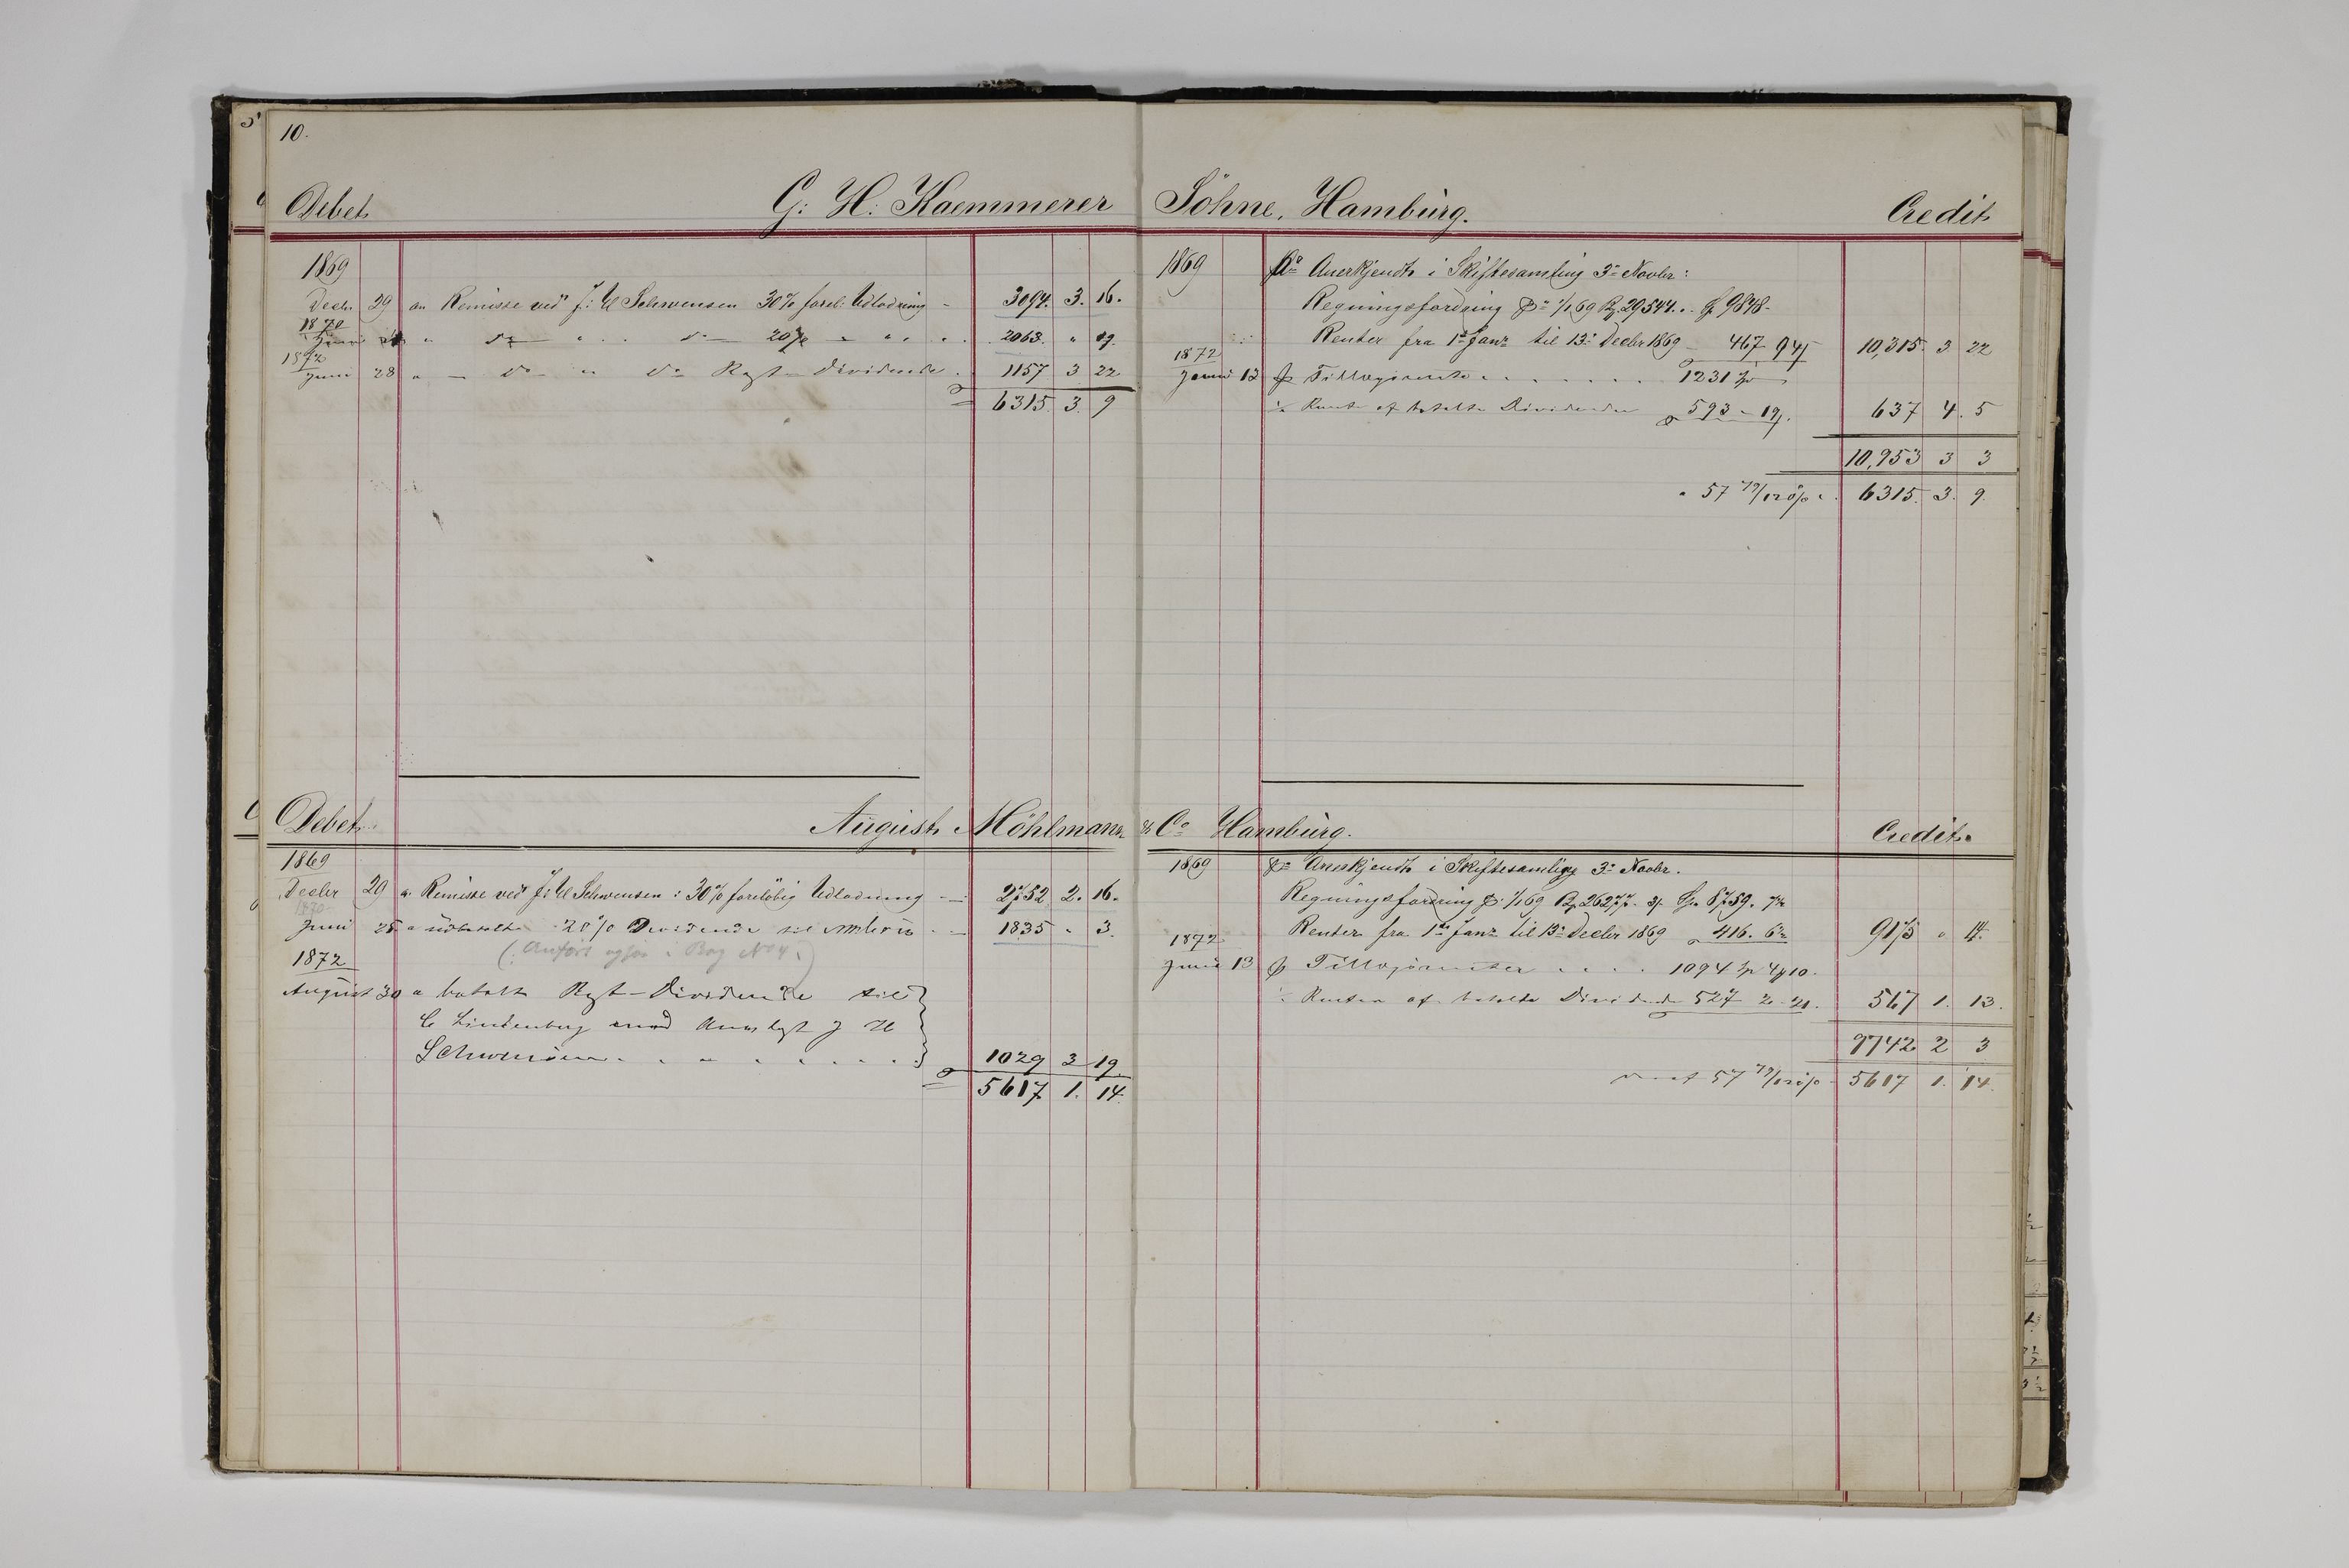 10.
Debet G: H: Kaemmerer Söhne, Hamburg. Credit
1869
Decbr 29 an Remisse ved J: H Schwensen 30% forel: Udlodning 3094. 3. 16.
1870
Juni do do 20% 2063. " 19.
1872
Juni 28 " do " do Rest-Dividende 1157 3 22
6315. 3. 9
1869 Pr Anerkjendt i Skiftesamling 3die Novbr:
Regningsfordring pr 1/1 69 29544.. 9848-
Renter fra 1ste Janr til 13de Decbr 1869 467 94 10,315. 3 22
1872
Juni 13 Tillægsrente 1231
Rente af betalte Dividender 593 - 19. 637 4. 5
10,953 3 3
57 79/120 % 6315. 3. 9.
Debet August Möhlmann & Co Hamburg. Credit
1869
Decbr 29 a Remisse ved J: H Schwensen: 30% foreløbig Udlodning 2752 2. 16.
1870
Juni 28 a udbetalt 20% Dividende til 1835 " 3.
(: Anført ogsaa i Bog No 4 :)
1872
August 30 a betalt Rest-Dividende til
C Lindenberg med J H
Schwensen 1029 3 19.
5617 1. 14.
1869 pr Anerkjendt i Skiftesamling 3die Novbr.
Regningsfordring pr 1/1 69 26277. 8759.
Renter fra 1ste Janr til 13de Decbr 1869 416. 9175 " 14.
1872
Juni 13 Tillægsrenter 1094 4 10.
Renter af betalte Dividende 527 2. 21. 567 1. 13.
9742 2 3
57 79/120 % 5617 1. 14.